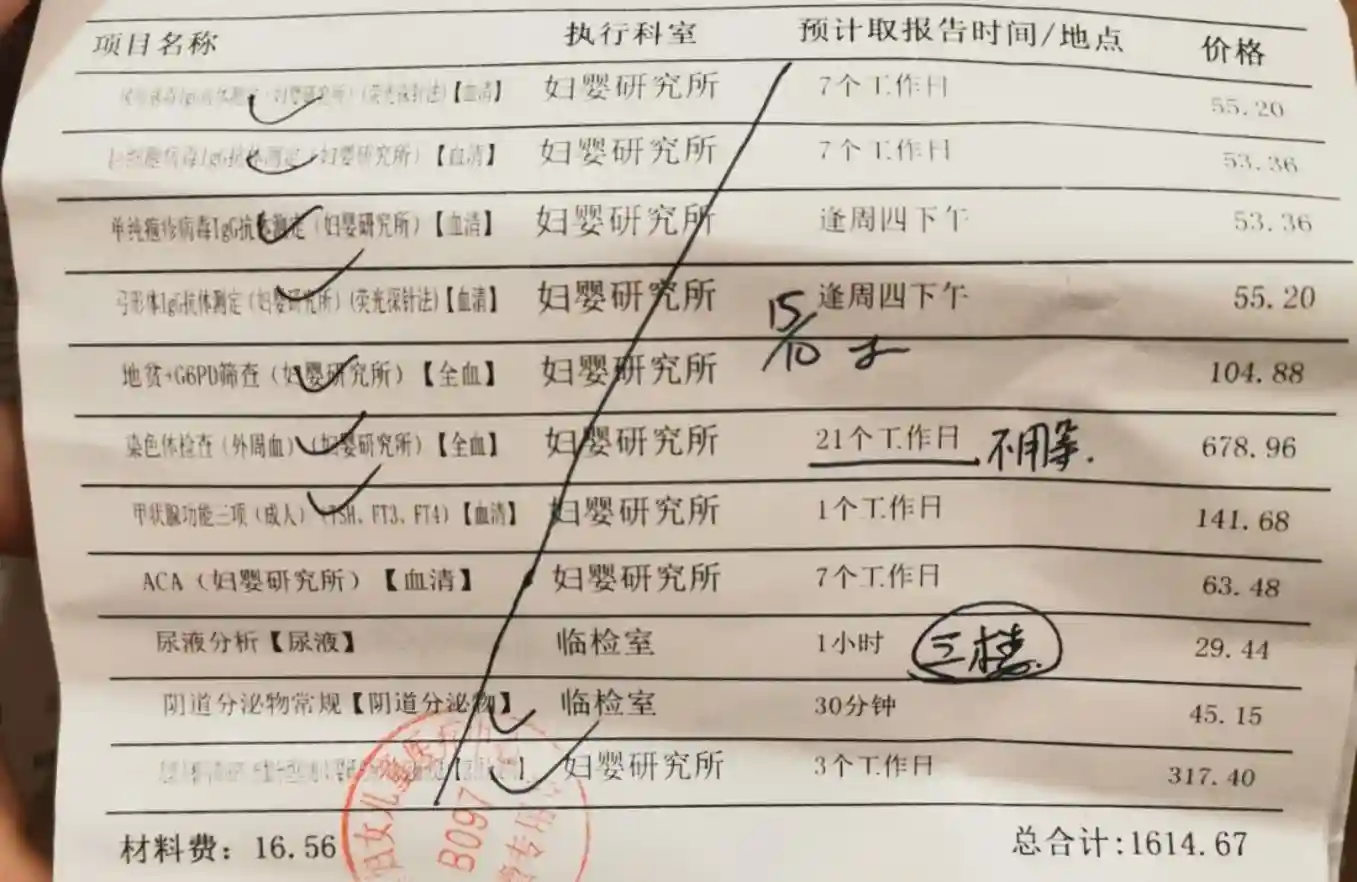 项目名称 执行科室 预计取报告时间/地点 价格
IgG抗体测定（妇婴研究所）(荧光探针法)【血清】 妇婴研究所 7个工作日 55.20
巨细胞病毒IgG抗体测定（妇婴研究所）【血清】 妇婴研究所 7个工作日 53.36
单纯疱疹病毒IgG抗体测定（妇婴研究所）【血清】 妇婴研究所 逢周四下午 53.36
弓形体IgG抗体测定（妇婴研究所）(荧光探针法)【血清】 妇婴研究所 逢周四下午 55.20
15/10
地贫+G6PD筛查（妇婴研究所）【全血】 妇婴研究所 104.88
染色体检查（外周血）（妇婴研究所）【全血】 妇婴研究所 21个工作日 不用等. 678.96
甲状腺功能三项（成人）（TSH、FT3、FT4）【血清】 妇婴研究所 1个工作日 141.68
ACA（妇婴研究所）【血清】 妇婴研究所 7个工作日 63.48
尿液分析【尿液】 临检室 1小时 三楼 29.44
阴道分泌物常规【阴道分泌物】 临检室 30分钟 45.15
妇婴研究所 3个工作日 317.40
材料费：16.56 总合计:1614.67
妇女儿童医疗
B097
专用